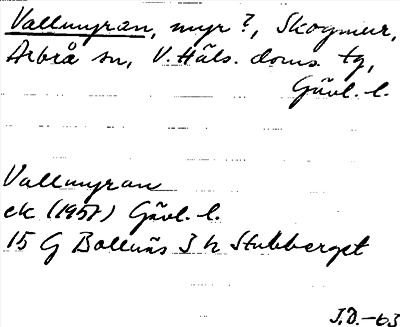 Vallmyran, myr?, Skogmur,
Arbrå sn, V. Häls. doms. tg,
Gävl. l.
Vallmyran
ek (1957) Gävl. l.
15 G Bollnäs 3 h Stubberget
J.D.-63